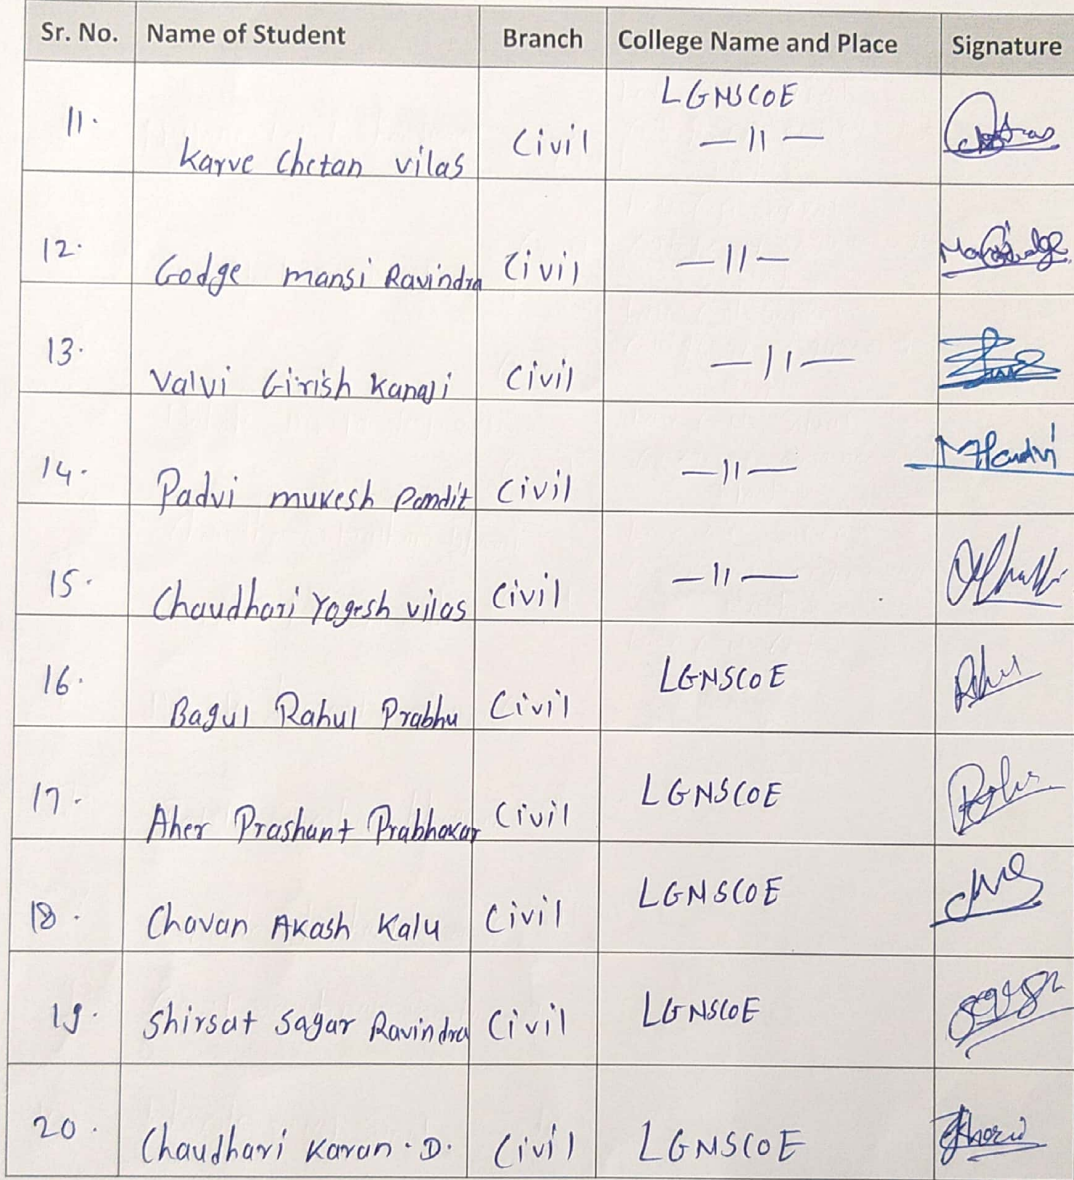 Sr. No. Name of Student Branch College Name and Place Signature
LGNSCOE
11. Karve Chetan vilas Civil —11—
12. Godge mansi Ravindra Civil —11—
13. Valvi Girish Kanaji Civil —11—
14. Padvi mukesh Pandit Civil —11—
15. Chaudhari Yogesh vilas Civil —11—
16. Bagul Rahul Prabhu Civil LGNSCOE
17. Aher Prashant Prabhakar Civil LGNSCOE
18. Chavan Akash Kalu Civil LGNSCOE
19. Shirsat Sagar Ravindra Civil LGNSCOE
20. Chaudhari Karan. D. Civil LGNSCOE